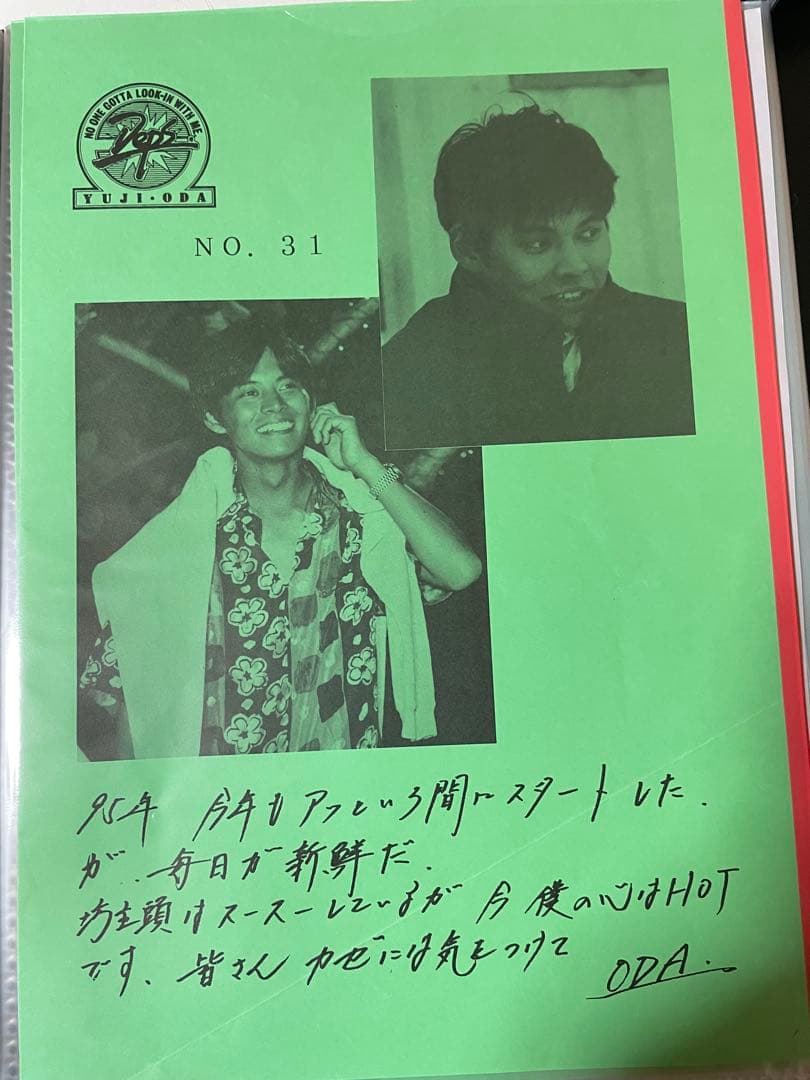 NO ONE GOTTA LOOK-IN WITH ME.
Deps
YUJI・ODA
NO. 31
95年 今年もアッという間にスタートした.
が..毎日が新鮮だ.
坊主頭はスースーしているが 今 僕の心はHOT
です、皆さん カゼには気をつけて
ODA.